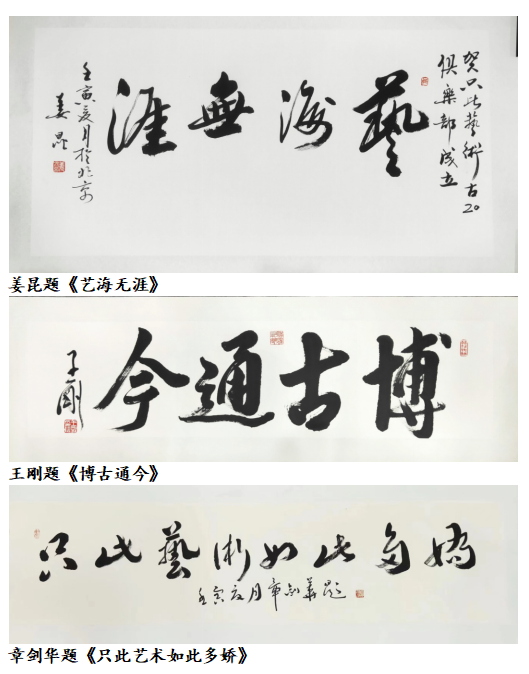 贺只此藝術古20
俱樂部成立
藝海無涯
壬寅夏月於北京
姜昆
姜昆题《艺海无涯》
博古通今
子剛
王刚题《博古通今》
只此藝術如此多嬌
壬寅夏月章剑華题
章剑华题《只此艺术如此多娇》